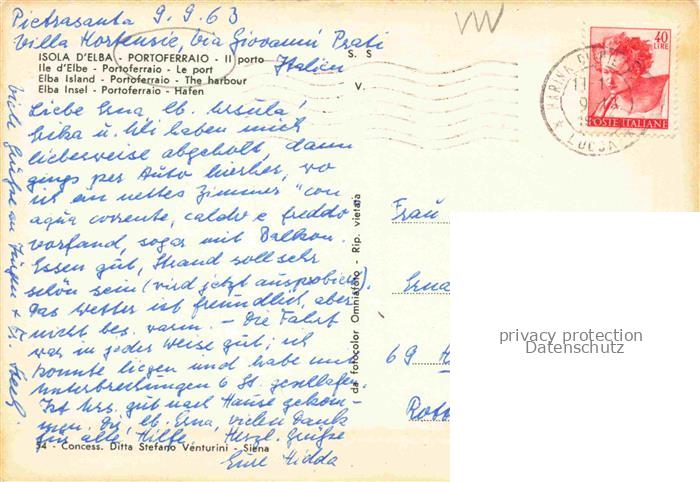 Pietrasanta 9.9.63
Villa Hortensie, Via Giovanni Prati
Italien
ISOLA D'ELBA - PORTOFERRAIO - Il porto
Ile d'Elbe - Portoferraio - Le port
Elba Island - Portoferraio - The harbour
Elba Insel - Portoferraio - Hafen
S. S
V.
40
LIRE
POSTE ITALIANE
MARINA DI PIE
LUCCA
Liebe Erna, lb. Ursula!
Erika u. Uli haben mich
lieberweise abgeholt, dann
gings per Auto hierher, wo
ich ein nettes Zimmer "con
aqua corrente, caldo e freddo
vorfand, sogar mit Balkon.
Essen gut, Strand soll sehr
schön sein (wird jetzt ausprobiert).
Das Wetter ist freundlich, aber
nicht bes. warm. - Die Fahrt
war in jeder Weise gut; ich
konnte liegen und habe mit
Unterbrechungen 6 St. geschlafen.
Ist hrs. gut nach Hause gekom-
men. Dir, lb. Erna, vielen Dank
für alle Hilfe. Herzl. Grüße
Eure Hidda
Viele Grüße an
54 - Concess. Ditta Stefano Venturini - Siena
da fotocolor Omniafoto - Rip. vietata
Frau
Erna
69 H
Rott
privacy protection
Datenschutz
VW